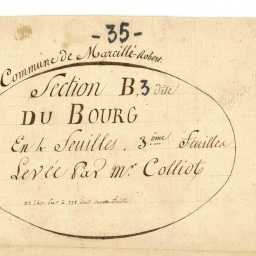 -35-
Commune de Marcillé-Robert
Section B.3 dite
DU BOURG
En 4 feuilles. 3ème feuilles
Levée Par mr Colliot